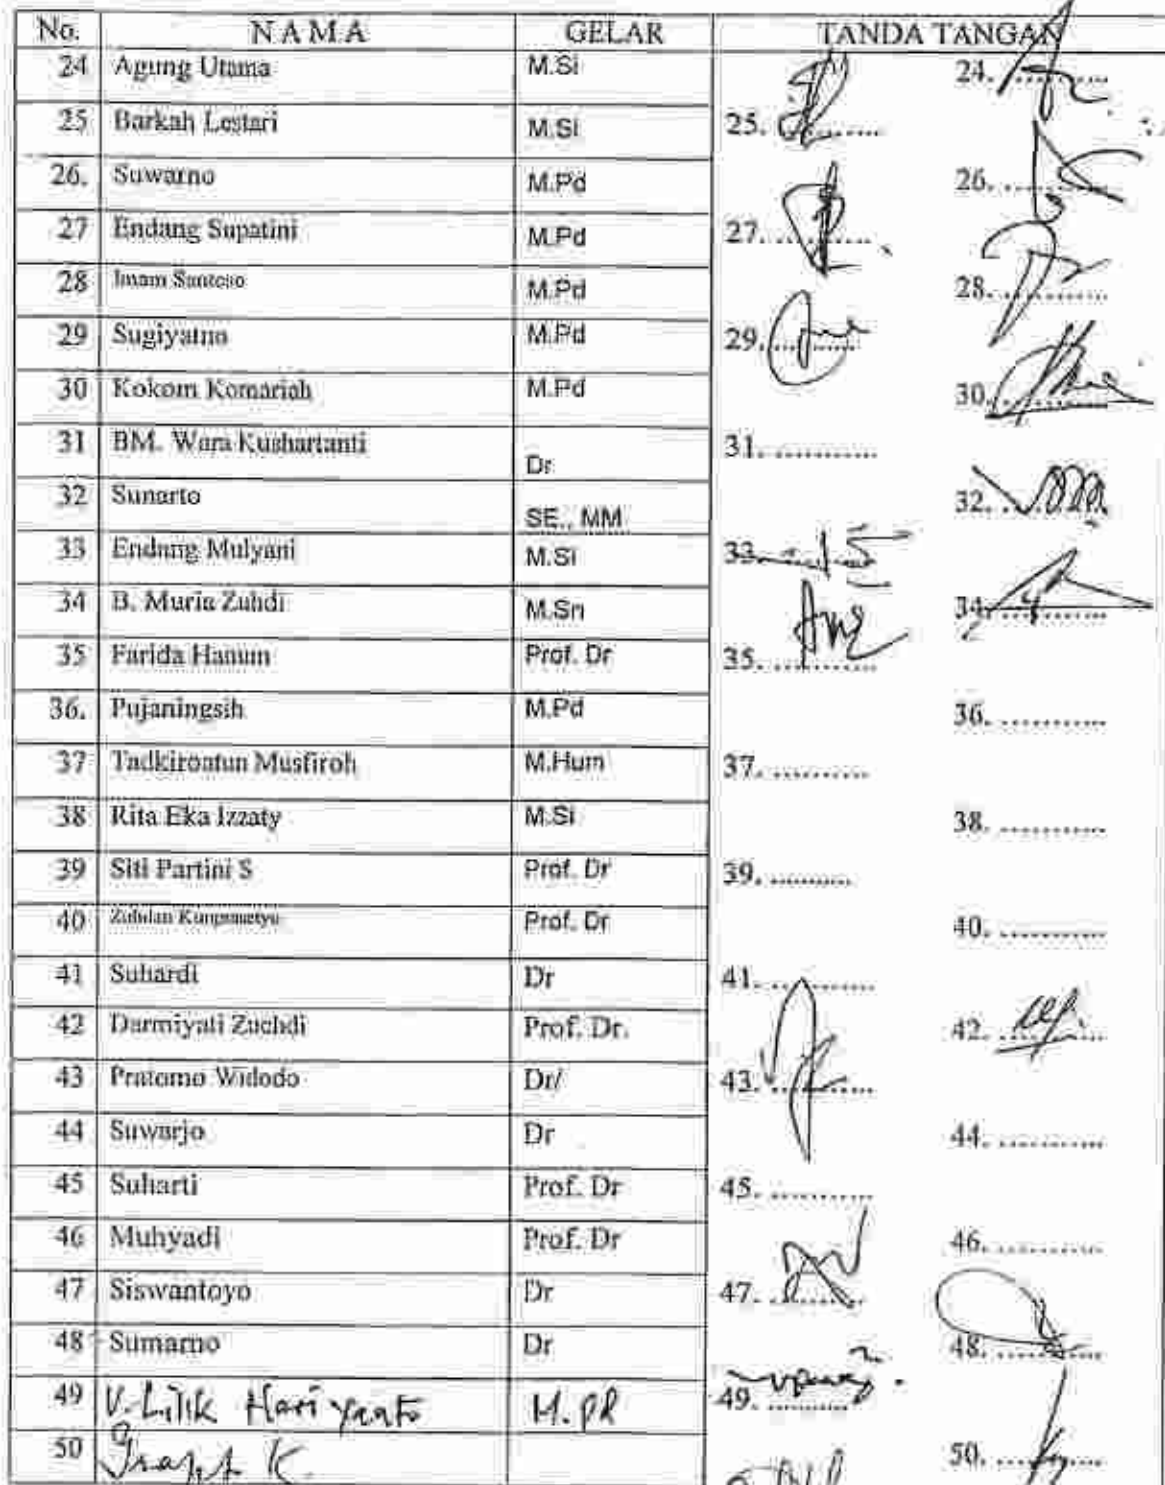 No. NAMA GELAR TANDA TANGAN
24 Agung Utama M.Si 24. ............
25 Barkah Lestari M.Si 25. ............
26. Suwarno M.Pd 26. ............
27 Endang Supatini M.Pd 27. ............
28 Imam Santoso M.Pd 28. ............
29 Sugiyatno M.Pd 29. ............
30 Kokom Komariah M.Pd 30. ............
31 BM. Wara Kushartanti Dr 31. ............
32 Sunarto SE., MM. 32. ............
33 Endang Mulyani M.Si 33. ............
34 B. Muria Zuhdi M.Sn 34. ............
35 Farida Hanum Prof. Dr 35. ............
36. Pujaningsih M.Pd 36. ............
37 Tadkiroatun Musfiroh M.Hum 37. ............
38 Rita Eka Izzaty M.Si 38. ............
39 Siti Partini S Prof. Dr 39. ............
40 Prof. Dr 40. ............
41 Suhardi Dr 41. ............
42 Darmiyati Zuchdi Prof. Dr. 42. ............
43 Pratomo Widodo Dr/ 43. ............
44 Suwarjo Dr 44. ............
45 Suharti Prof. Dr 45. ............
46 Muhyadi Prof. Dr 46. ............
47 Siswantoyo Dr 47. ............
48 Sumarno Dr 48. ............
49 V. Lilik Hariyanto M.Pd 49. ............
50 K. 50. ............